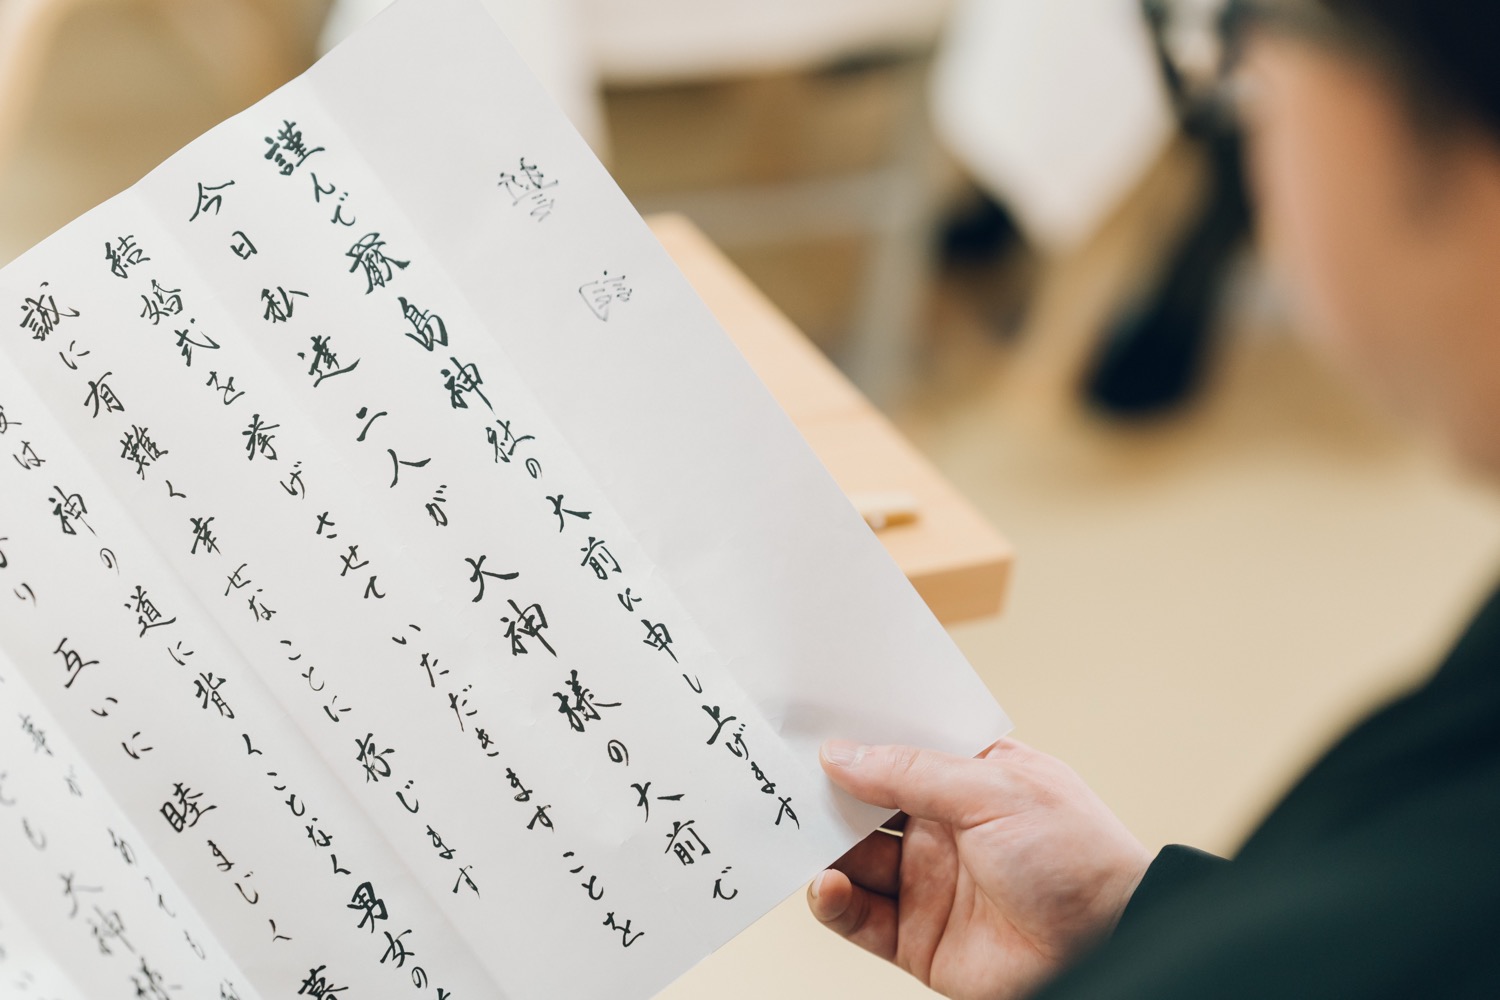 誓言
謹んで厳島神社の大前に申し上げます
今日私達二人が大神様の大前で
結婚式を挙げさせていただきますことを
誠に有難く幸せなことに存じます
は神の道に背くことなく男女の
り互いに睦まじく暮
事があっても
ても大神様